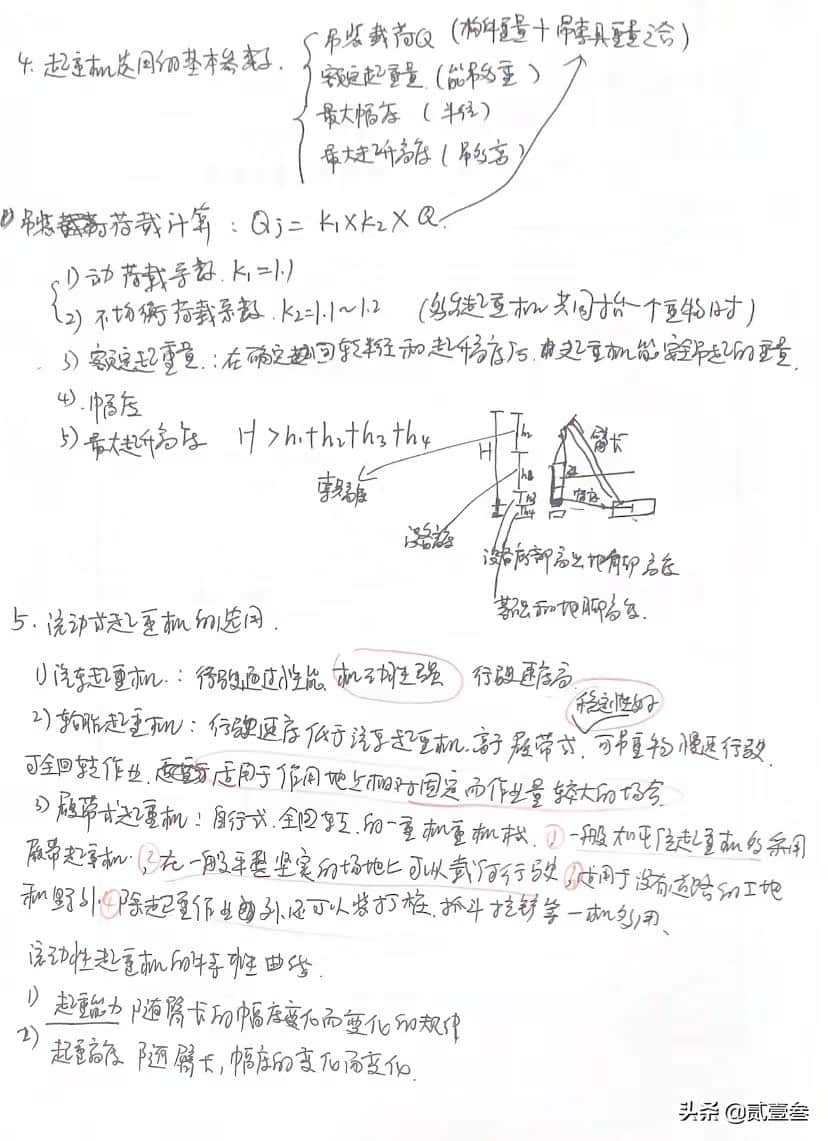 4. 起重机选用的基本参数.
吊装载荷Q (构件重量+吊索具重量之合)
额定起重量.(能吊多重)
最大幅度 (半径)
最大起升高度(吊多高)
吊装荷载计算: Qj = K1×K2×Q.
1) 动荷载系数. K1=1.1
2) 不均衡荷载系数. K2=1.1~1.2 (多台起重机共同抬一个重物时)
3) 额定起重量.:在确定回转半径和起升高度后. 起重机能安全吊起的重量.
4). 幅度
5) 最大起升高度 H>h1+h2+h3+h4
H
h2
h3
h4
臂长
幅度
索具高度
设备高度
设备底部高出地脚高度
基础和地脚高度.
5. 流动式起重机的选用.
1) 汽车起重机.: 行驶通过性能, 机动性强 行驶速度高.
稳定性好
2) 轮胎起重机: 行驶速度低于汽车起重机.高于履带式. 可吊重物慢速行驶.
可全回转作业. 适用于作用地点相对固定而作业量较大的场合
3) 履带式起重机: 自行式.全回转.的一重机重机械. ①一般大吨位起重机多采用
履带起重机. ②在一般平整坚实的场地上可以载荷行驶, ③适用于没有道路的工地
和野外. ④除起重作业外还可以装打桩.抓斗挖铲等一机多用、
流动性起重机的特性曲线.
1) 起重能力随臂长的幅度变化而变化的规律
2) 起重高度随臂长,幅度的变化而变化.
头条 @贰壹叁